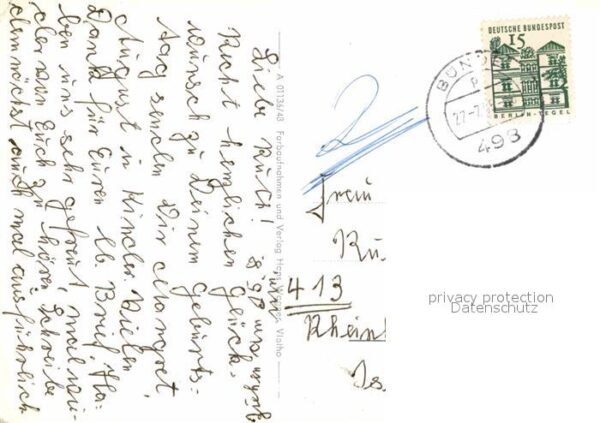 Liebe Ruth!
Recht herzlichen Glück-
wunsch zu Deinem Geburts-
tag senden Dir Margret,
August u. Kinder. Vielen
Dank für Euren lb. Brief. Ha-
ben uns sehr gefreut, mal wie-
der von Euch zu hören. Schreibe
demnächst auch mal ausführlich
A 0113/48 Farbaufnahmen und Verlag Hans Vlotho
DEUTSCHE BUNDESPOST
15
BERLIN-TEGEL
BÜNDE
498
Frau
413
Rhein
privacy protection
Datenschutz